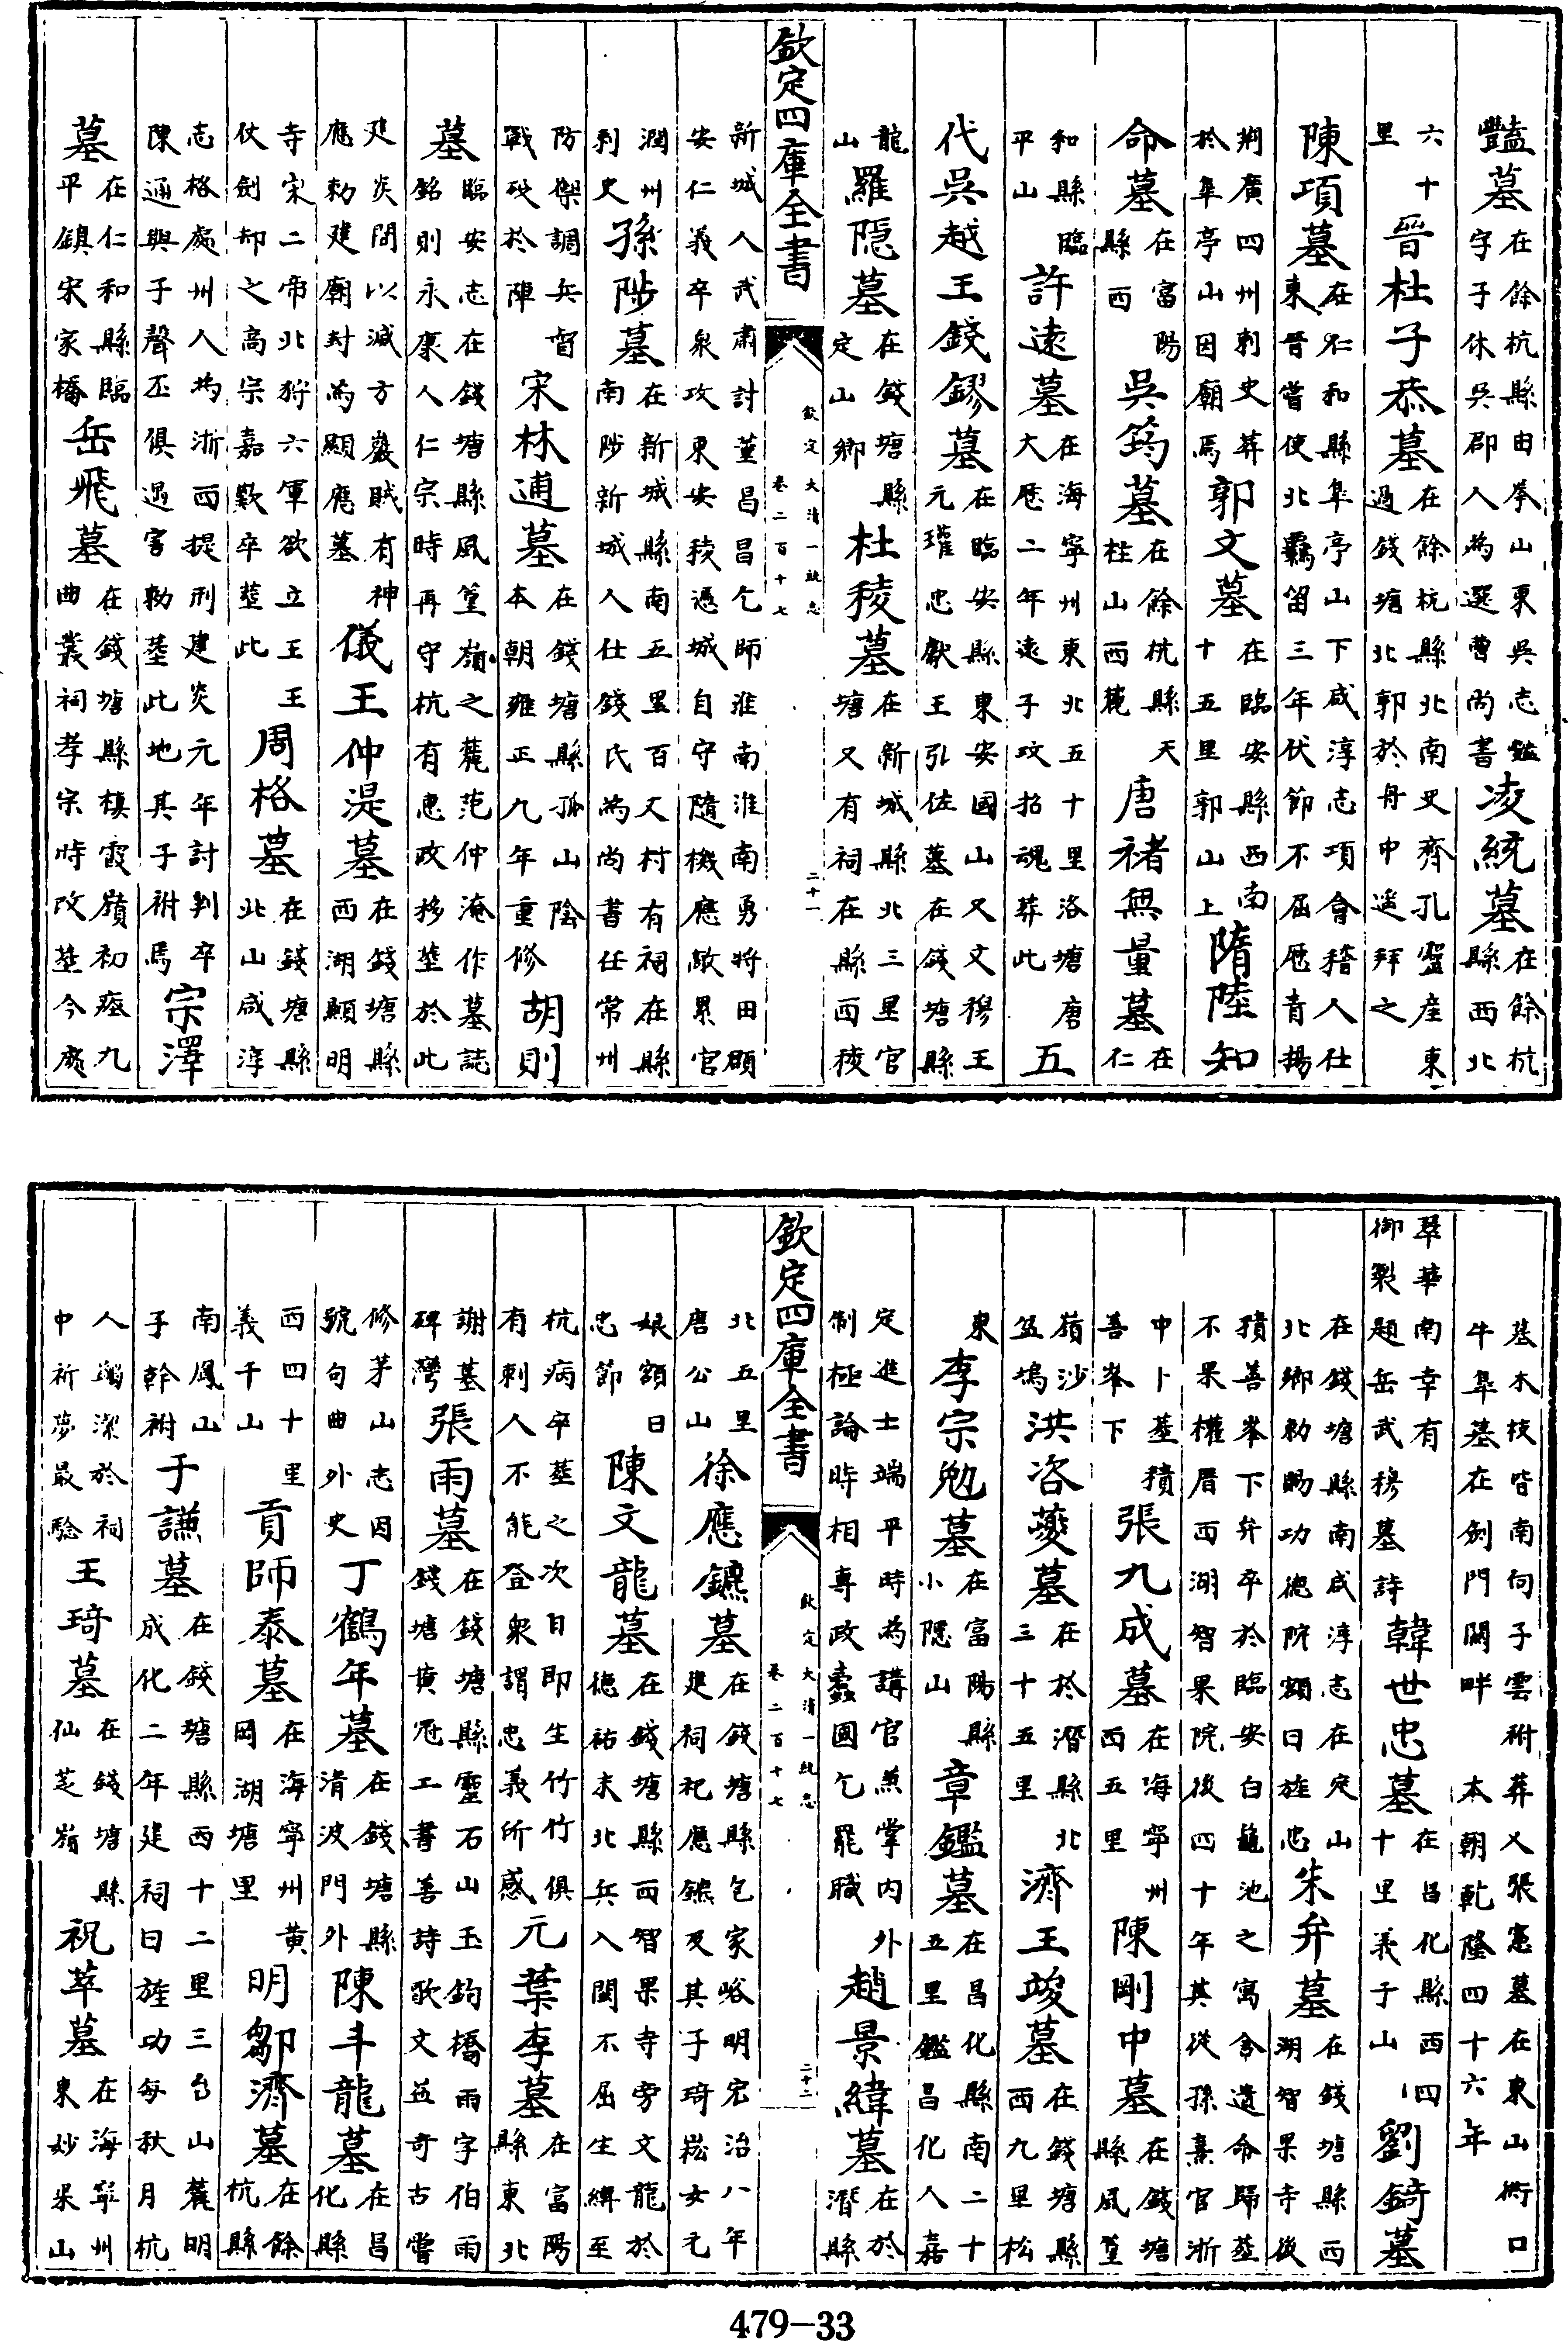 豔墓在餘杭縣由拳山東吳志豔字子休吳郡人為選曹尚書凌統墓在餘杭縣西北
六十里晉杜子恭墓在餘杭縣北南史齊孔靈產東過錢塘北郭於舟中遙拜之
陳項墓在仁和縣臯亭山下咸淳志項會稽人仕東晉嘗使北羈留三年伏節不屈歷青揚
荆廣四州刺史葬於臯亭山因廟焉郭文墓在臨安縣西南十五里郭山上隋陸知
命墓在富陽縣西吳筠墓在餘杭縣天柱山西麓唐禇無量墓在仁
和縣臨平山許遠墓在海寧州東北五十里洛塘唐大厯二年遠子玟招魂葬此五
代吳越王錢鏐墓在臨安縣東安國山又文穆王元瓘忠獻王引佐墓在錢塘縣
龍山羅隱墓在錢塘縣定山鄉杜稜墓在新城縣北三里官塘又有祠在縣西稜
欽定四庫全書
欽定大清一統志
卷二百十七
二十一
新城人武肅討董昌昌乞師淮南淮南勇將田頵安仁義卒泉攻東安稜憑城自守隨機應敵累官
潤州刺史孫陟墓在新城縣南五里百丈村有祠在縣南陟新城人仕錢氏為尚書任常州
防禦調兵督戰殁於陣宋林逋墓在錢塘縣孤山陰本朝雍正九年重修胡則
墓臨安志在錢塘縣風篁嶺之麓范仲淹作墓誌銘則永康人仁宗時再守杭有惠政移塟於此
建炎間以滅方巖賊有神應勅建廟封為顯應墓儀王仲湜墓在錢塘縣西湖顯明
寺宋二帝北狩六軍欲立王王仗劍却之高宗嘉歎卒塟此周格墓在錢塘縣北山咸淳
志格處州人為浙西提刑建炎元年討判卒陳通與子聲丕俱遇害勅塟此地其子祔焉宗澤
墓在仁和縣臨平鎮宋家橋岳飛墓在錢塘縣棲霞嶺初瘞九曲叢祠孝宗時改塟今處
墓木枝皆南向子雲祔葬又張憲墓在東山衖口牛臯墓在劍門關畔本朝乾隆四十六年
翠華南幸有御製題岳武穆墓詩韓世忠墓在昌化縣西四十里義子山劉錡墓
在錢塘縣南咸淳志在定山北鄉勅賜功德院額曰旌忠朱弁墓在錢塘縣西湖智果寺後
積善峯下弁卒於臨安白龜池之寓舍遺命歸塟不果權厝西湖智果院後四十年其從孫熹官浙
中卜塟積善峯下張九成墓在海寧州西五里陳剛中墓在錢塘縣風篁
嶺沙盆塢洪咨夔墓在於潛縣北三十五里濟王竑墓在錢塘縣西九里松
東李宗勉墓在富陽縣小隱山章鑑墓在昌化縣南二十五里鑑昌化人嘉
定進士端平時為講官兼掌內外制極論時相專政蠹國乞罷職趙景緯墓在於潛縣
欽定四庫全書
欽定大清一統志
卷二百十七
二十二
北五里唐公山徐應鑣墓在錢塘縣包家峪明宏治八年建祠祀應鑣及其子琦崧女元
娘額曰忠節陳文龍墓在錢塘縣西智果寺旁文龍於德祐末北兵入閩不屈生縛至
杭病卒塟之次日即生竹竹俱有刺人不能登衆謂忠義所感元葉李墓在富陽縣東北
謝墓碑灣張雨墓在錢塘縣靈石山玉鉤橋雨字伯雨錢塘黄冠工書善詩歌文益奇古嘗
修茅山志因號句曲外史丁鶴年墓在錢塘縣清波門外陳斗龍墓在昌化縣
西四十里義千山貢師泰墓在海寧州黃岡湖塘里明鄒濟墓在餘杭縣
南鳳山子幹祔于謙墓在錢塘縣西十二里三台山麓明成化二年建祠曰旌功每秋月杭
人齋潔於祠中祈夢最驗王琦墓在錢塘縣仙芝嶺祝萃墓在海寧州東妙果山
479-33